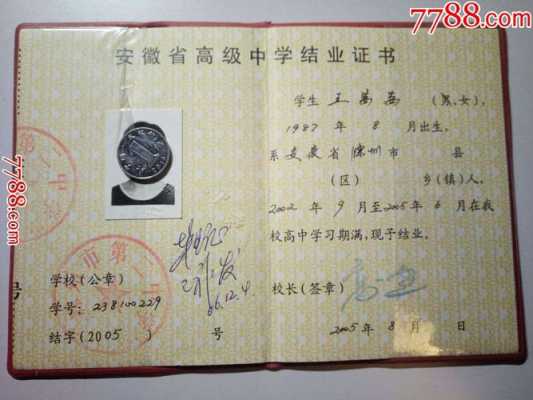 7788.com
安徽省高级中学结业证书
学生 王 (男、女),
1987 年 8 月出生,
系安徽省滁州市 县
(区) 乡(镇)人,
2002 年 9 月至2005年 6 月在我
校高中学习期满,现予结业。
校长(签章)
2005年 8 月 日
学校(公章)
学号: 238100229
结字(2005 ) 号
市第
06.12.4.
7788.com